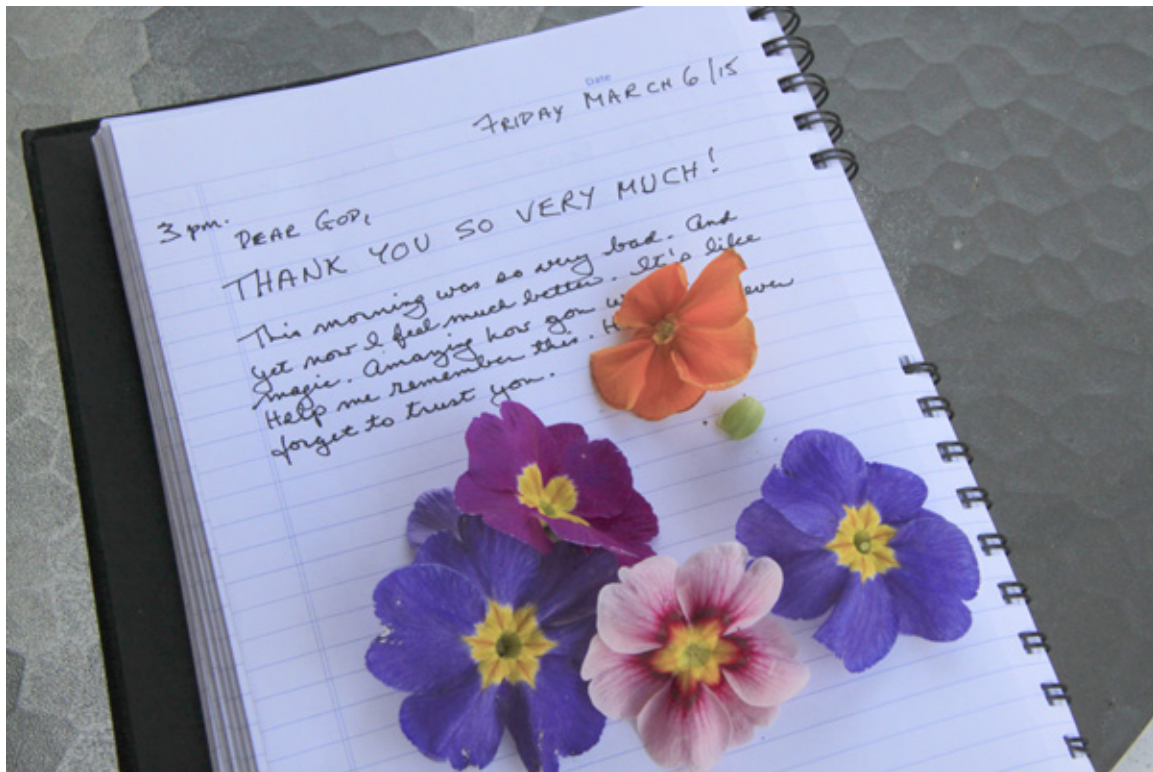 Date
FRIDAY MARCH 6/15
3 pm.
DEAR GOD,
THANK YOU SO VERY MUCH!
This morning was so very bad. And
yet now I feel much better. It's like
magic. Amazing how you ever
Help me remember this.
forget to trust you.